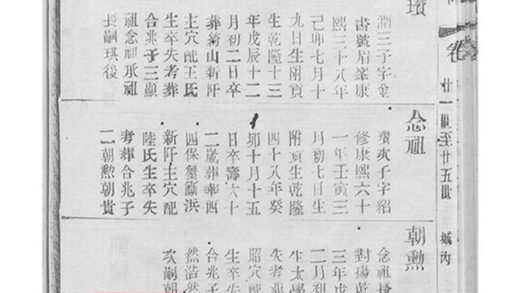 卷
廿一世至廿五世 城內
淵三子字金
書號眉峯康
熙三十八年
己卯七月十
九日生附貢
生乾隆十三
年戊辰十二
月初二日卒
山新阡
主穴配王氏
生卒失考葬
合兆子三顯
祖念祖承祖
長嗣琪後
念祖
次子字紹
修康熙六十
一年壬寅三
月初七日生
附貢生乾隆
四十八年癸
卯十月十五
日卒壽六十
二歲葬華四
四保蟹浜
新阡主穴配
陸氏生卒失
考葬合兆子
二朝勲朝貴
朝勲
念祖
對揚乾
三年戊
二月
生太學
失考
昭穴配
生卒失
合兆子
然浩然
次嗣朝